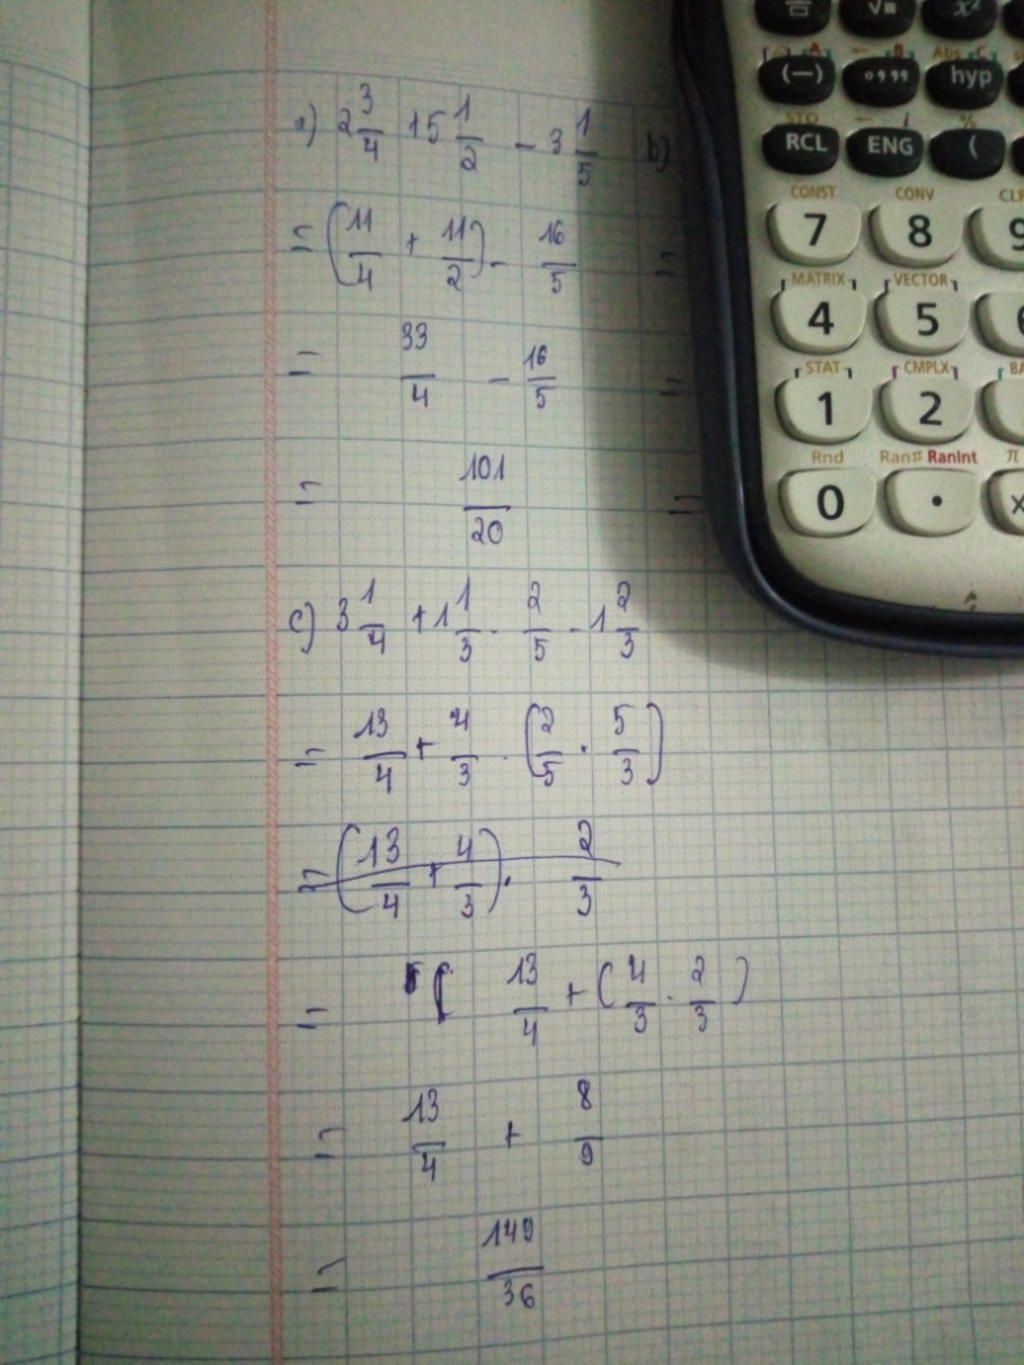 a) 2 3/4 + 5 1/2 - 3 1/5 b)
= (11/4 + 11/2) - 16/5 =
= 33/4 - 16/5 =
= 101/20 =
c) 3 1/4 + 1 1/3 . 2/5 . 1 2/3
= 13/4 + 4/3 . (2/5 . 5/3)
= (13/4 + 4/3) . 2/3
= 13/4 + (4/3 . 2/3)
= 13/4 + 8/9
= 149/36
x²
A B Abs C
(—) °''' hyp
STO i %
RCL ENG (
CONST CONV
7 8 9
MATRIX VECTOR
4 5 6
STAT CMPLX
1 2
Rnd Ran# RanInt π
0 .